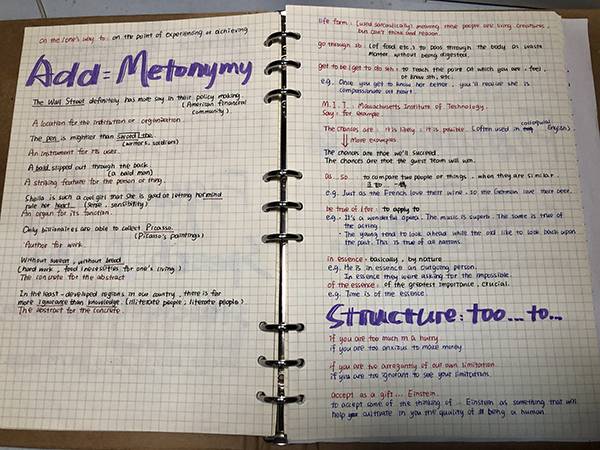 on the (one's) way to : on the point of experiencing or achieving
Add = Metonymy
The Wall Street definitely has more say in their policy making.
(American financial
community)
A location for the institution or organisation.
The pen is mightier than sword the.
(writers, soldiers)
An instrument for its user.
A bald slipped out through the back.
(a bald man)
A striking feature for the person or thing.
Sheila is such a cool girl that she is good at letting her mind
rule her heart. (sense, sensibility)
An organ for its function.
Only billionaires are able to collect Picasso.
(Picasso's paintings)
Author for work
Without sweat, without bread
(hard work, food / necessities for one's living)
The concrete for the abstract
In the least-developed regions in our country, there is far
more ignorance than knowledge. (illiterate people; literate people)
The abstract for the concrete.
life form : (used sarcastically) meaning these people are living creatures
but can't think and reason.
go through sb : (of food etc.) to pass through the body as waste
matter without being digested.
get to be / get to do sth : to reach the point at which you are, feel,
or know sth, etc.
e.g. Once you get to know her better, you'll realise she is
compassionate at heart.
M. I. T. : Massachusetts Institute of Technology.
say : for example
The chances are : it is likely ; it is possible (often used in colloquial English).
more examples
The chances are that we'll succeed.
The chances are that the guest team will win.
as.. so.. to compare two people or things, when they are similar.
e.g. Just as the French love their wine, so the German love their beer.
be true of / for : to apply to
e.g. · It's a wonderful opera. The music is superb. The same is true of
the acting.
· The young tend to look ahead while the old like to look back upon
the past. This is true of all nations.
in essence : basically, by nature
e.g. He is in essence an outgoing person.
In essence they were asking for the impossible.
of the essence : of the greatest importance, crucial.
e.g. Time is of the essence.
Structure: too... to...
if you are too much in a hurry
if you are too anxious to make money
if you are too arrogantly of our own limitation
if you are too ignorant to see your limitations.
accept as a gift ... Einstein.
to accept some of the thinking of .. Einstein as something that will
help you cultivate in you the quality of being a human